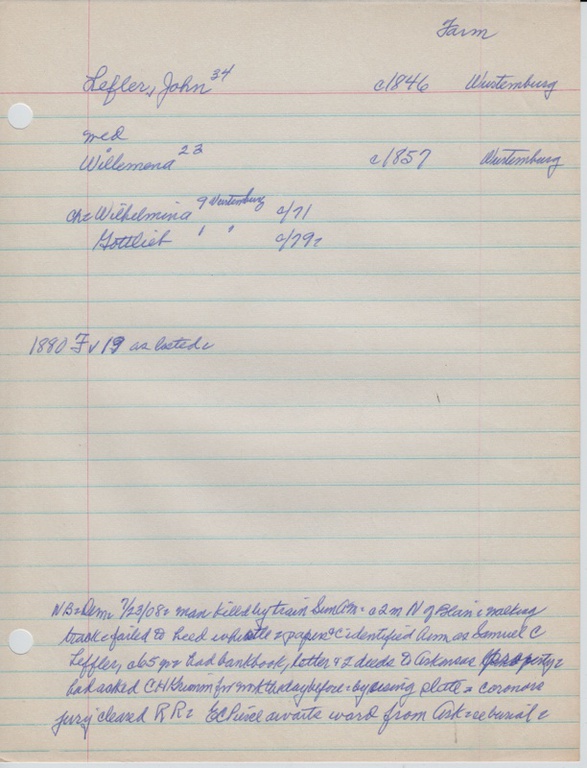 Farm
Lefler, John 34 c1846 Wurtemburg
med
Willemena 23 c1857 Wurtemburg
ch: Wilhelmina 9 Wurtemburg c/71
Gottlieb 1 " c/79
1880 F v 19 as listed
NB: Dem: 7/23/08: man killed by train Sun Am: a 2 m N of Blair: walking
track: failed to heed whistle: papers identified him as Samuel C
Leffler, a65 yr: had bankbook, letter & 2 deeds to Arkansas property:
had asked C H Krumm for work the day before: coroners
jury cleared R R: E C Pierce awaits word from Ark: re burial: